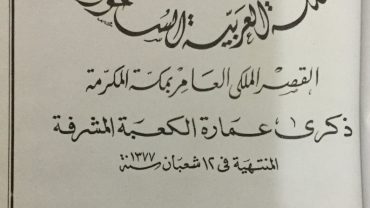 العربية
القصر الملكى العامر بمكة المكرمة
ذكرى عمارة الكعبة المشرفة
المنتهية فى ١٢ شعبان سنة ١٣٧٧